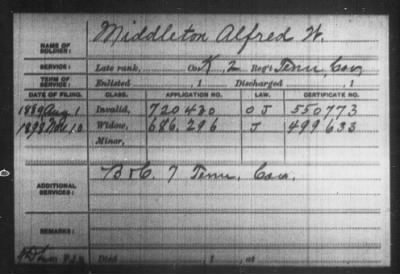 NAME OF SOLDIER: Middleton Alfred W.
SERVICE: Late rank, Co. K, 2 Reg't Tenn. Cav.
TERM OF SERVICE: Enlisted , 1 Discharged , 1
DATE OF FILING. CLASS. APPLICATION NO. LAW. CERTIFICATE NO.
1889 Aug 1 Invalid, 720 430 O J 550773
1898 10 Widow, 686.296 J 499 633
Minor,
ADDITIONAL SERVICES: B & C. 7 Tenn. Cav.
REMARKS:
Died , 1 , at